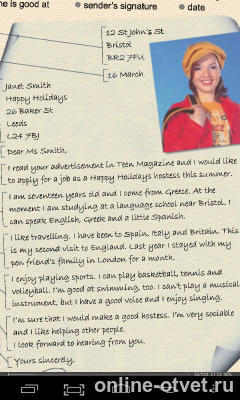 he is good at
sender's signature
date
12 St John's St
Bristol
BR2 7FU
16 March
Janet Smith
Happy Holidays
26 Baker St
Leeds
L24 7BJ
Dear Ms Smith,
I read your advertisement in Teen Magazine and I would like
to apply for a job as a Happy Holidays hostess this summer.
I am seventeen years old and I come from Greece. At the
moment I am studying at a language school near Bristol. I
can speak English, Greek and a little Spanish.
I like travelling. I have been to Spain, Italy and Britain. This
is my second visit to England. Last year I stayed with my
pen friend's family in London for a month.
I enjoy playing sports. I can play basketball, tennis and
volleyball. I'm good at swimming, too. I can't play a musical
instrument, but I have a good voice and I enjoy singing.
I'm sure that I would make a good hostess. I'm very sociable
and I like helping other people.
I look forward to hearing from you.
Yours sincerely,
online-otvet.ru